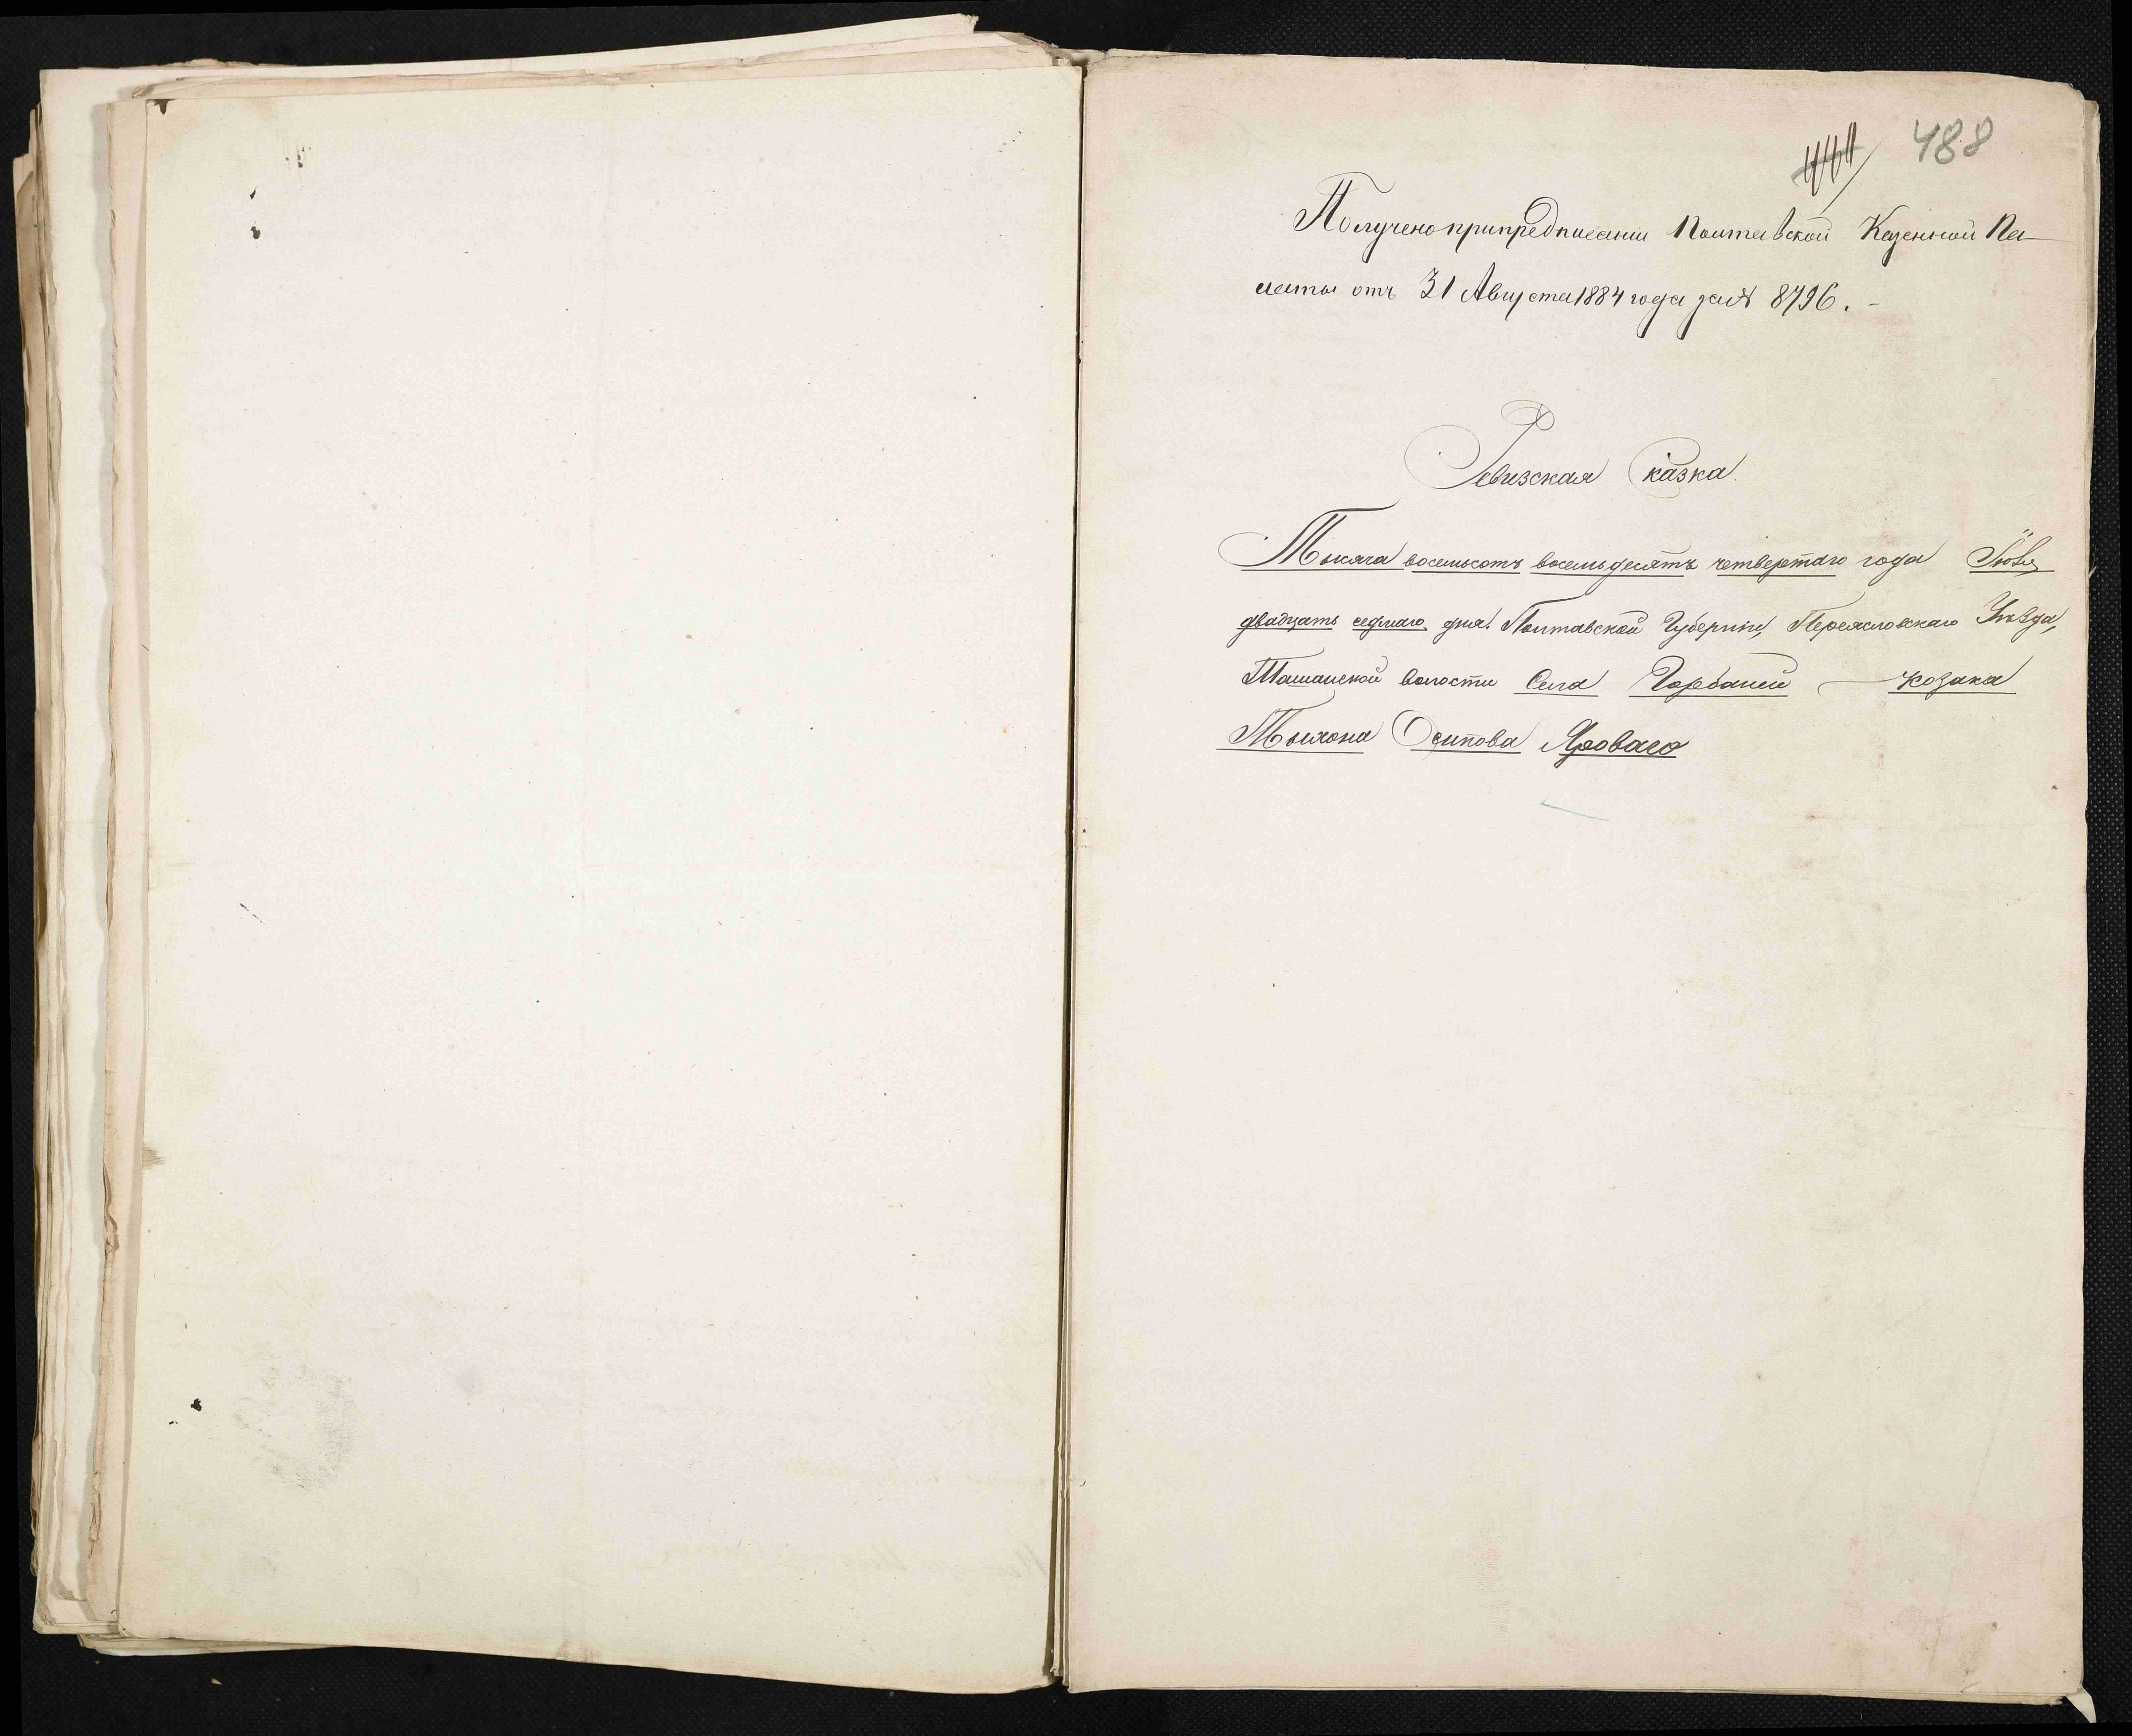 488
Получено при предписании Полтавской Казенной Па-
латы отъ 31 Августа 1884 года за № 8796. -
Ревизская Сказка.
Тысяча восемьсотъ восемьдесятъ четвертаго года Іюля
двадцать седмаго дня. Полтавской Губерніи, Переясловскаго Уѣзда,
Ташанской волости Села Горбаней — козака
Тихона Осипова Яроваго